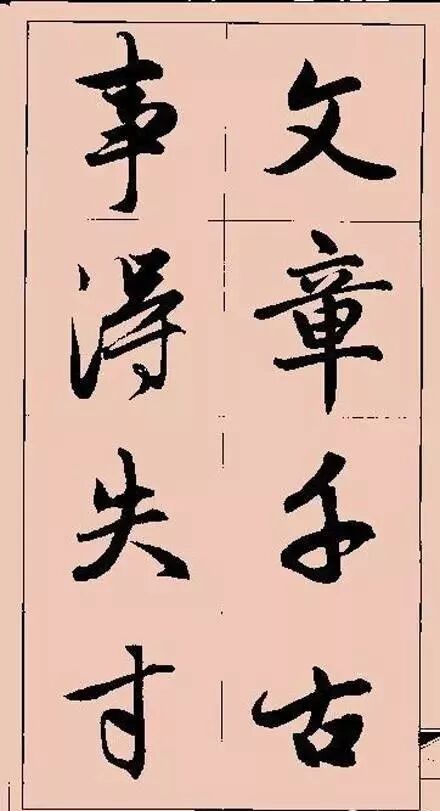 文章千古
事得失寸